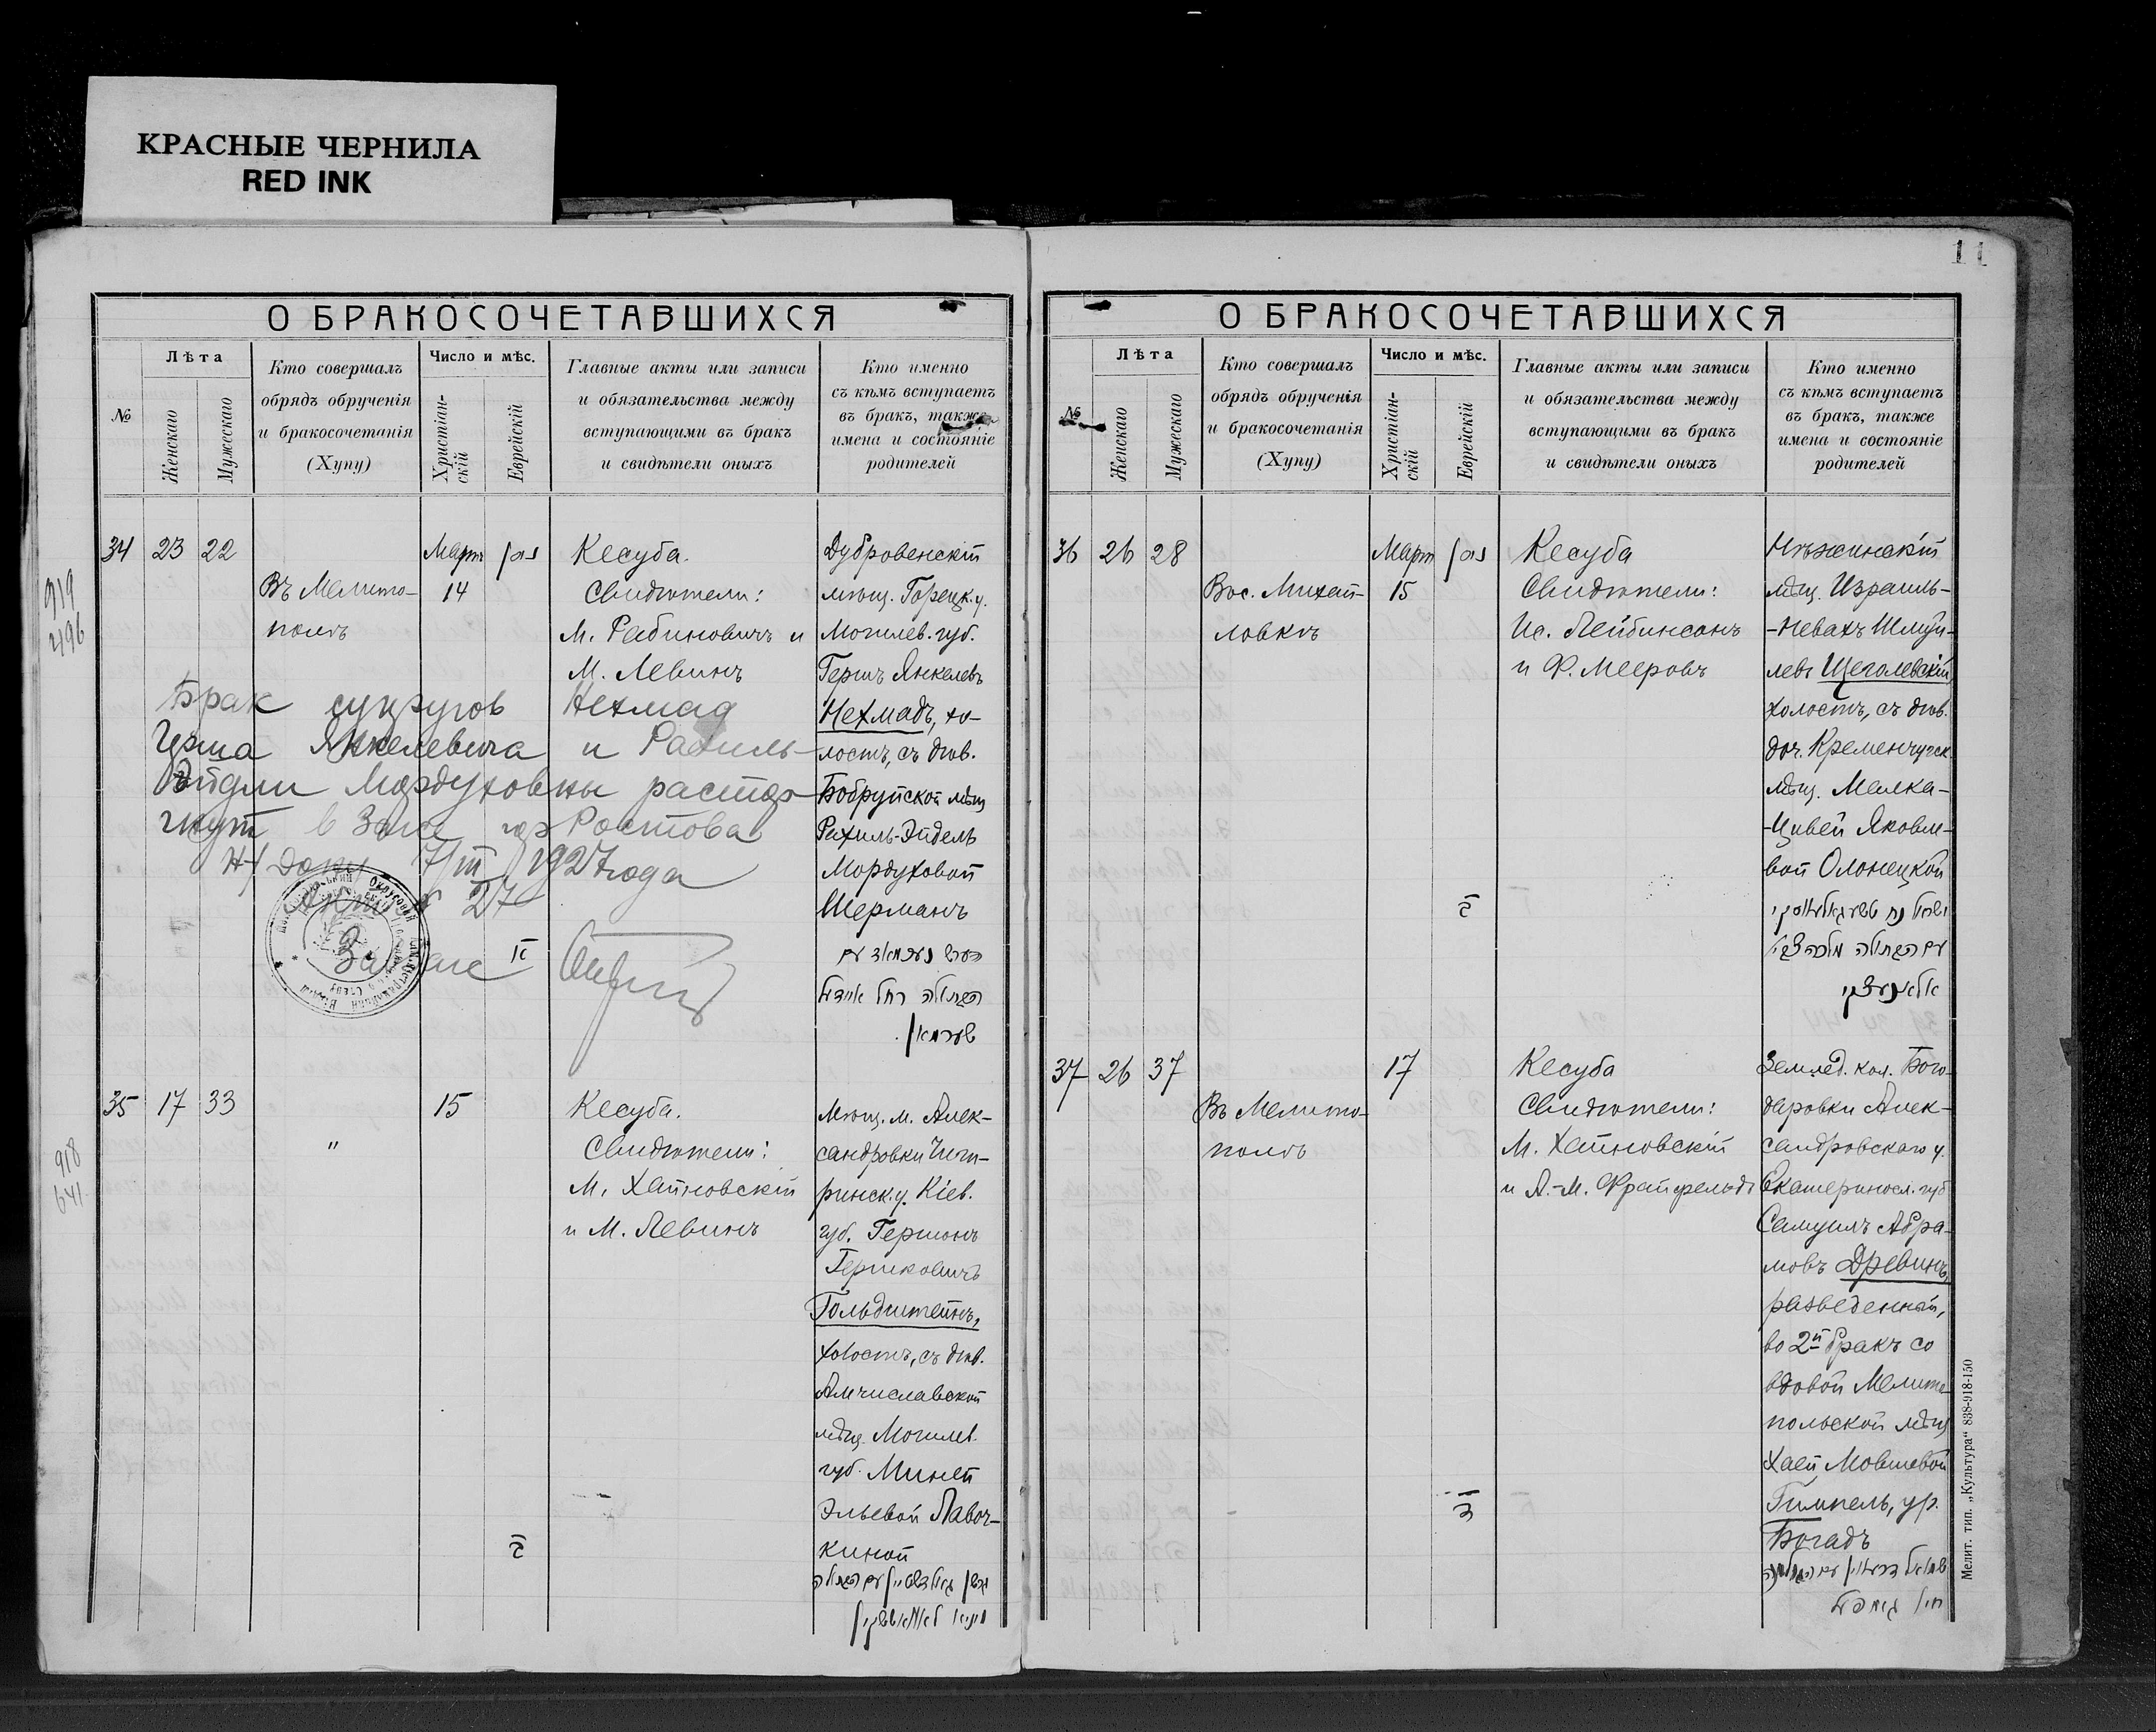 КРАСНЫЕ ЧЕРНИЛА
RED INK
11
О БРАКОСОЧЕТАВШИХСЯ
№
Лѣта
Женскаго
Мужескаго
Кто совершалъ
обрядъ обрученія
и бракосочетанія
(Хупу)
Число и мѣс.
Христіан-
скій
Еврейскій
Главные акты или записи
и обязательства между
вступающими въ бракъ
и свидѣтели оныхъ
Кто именно
съ кѣмъ вступаетъ
въ бракъ, также
имена и состояніе
родителей
919
2196
34 23 22
Въ Мелито-
полѣ
Март
14
Кесуба.
Свидѣтели:
М. Рабиновичъ и
М. Левинъ
Дубровенскій
мѣщ. Горецк. у.
Могилев. губ.
Гершъ Янкелевъ
Нехмадъ, хо-
лостъ, съ дѣв.
Бобруйской мѣщ
Рахиль-Эйдель
Мордуховой
Шерманъ
Брак супругов Нехмад
Герша Янкелевича и Рахиль-
Эйдли Мордуховны растор-
гнут в Загсе гор Ростова
н/Дону 7/III 1927 года
Акт № 27
918
641
35 17 33
"
15
Кесуба.
Свидѣтели:
М. Хайновскій
и М. Левинъ
Мѣщ. м. Алек-
сандровки Чиги-
ринск. у. Кіев.
губ. Гершонъ
Гершковичъ
Гольдштейнъ,
холостъ, съ дѣв.
Амчиславской
мѣщ. Могилев.
губ. Миней
Эльевой Лавоч-
киной
О БРАКОСОЧЕТАВШИХСЯ
№
Лѣта
Женскаго
Мужескаго
Кто совершалъ
обрядъ обрученія
и бракосочетанія
(Хупу)
Число и мѣс.
Христіан-
скій
Еврейскій
Главные акты или записи
и обязательства между
вступающими въ бракъ
и свидѣтели оныхъ
Кто именно
съ кѣмъ вступаетъ
въ бракъ, также
имена и состояніе
родителей
36 26 28
Въ с. Михай-
ловкѣ
Март
15
Кесуба
Свидѣтели:
Ис. Лейбинсонъ
и Ф. Мееровъ
Нѣжинскій
мѣщ. Израиль-
-Невахъ Шмуй-
левъ Щеголевскій,
холостъ, съ дѣв.
доч. Кременчугск.
мѣщ. Малка-
-Цивей Яковле-
вой Олонецкой
37 26 37
Въ Мелито-
полѣ
17
Кесуба
Свидѣтели:
М. Хайновскій
и А.-М. Фрайфельдъ
Землед. кол. Бого-
даровки Алек-
сандровскаго у.
Екатериносл. губ
Самуилъ Абра-
мовъ Древинъ,
разведенный,
во 2й бракъ со
вдовой Мелито-
польской мѣщ
Хаей Мовшевой
Гимпель, ур.
Богадъ
Мелит. тип. „Культура“ 838-918-150